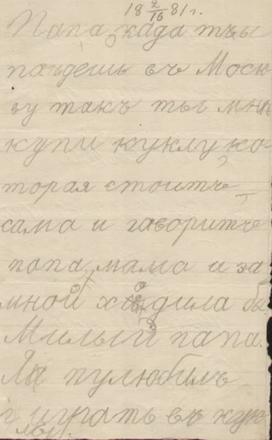 18 2/16 81 г.
Папа, када ты
паедешь въ Моск
ву такъ ты мнѣ
купи куклу ко
торая стоитъ
сама и гаворитъ
папа, мама и за
мной ходила бы
Милый папа.
Я пулюбилъ
играть въ кук
лы.